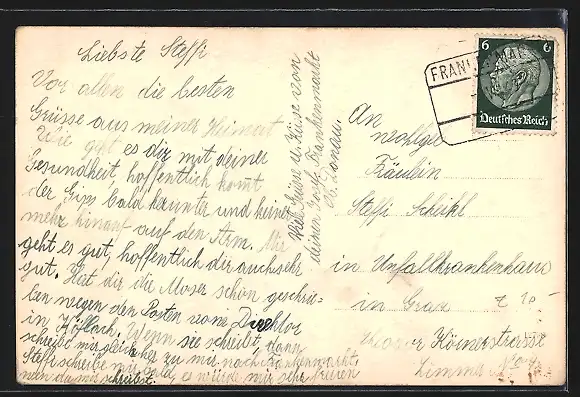 Liebste Steffi
Vor allen die besten
Grüsse aus meiner Heimat
Wie geht es dir mit deiner
Gesundheit, hoffentlich komt
der Gips bald herunter und keiner
mehr hinauf auf den Arm. Mir
geht es gut, hoffentlich dir auch sehr
gut. Hat dir die Moser schon geschrie-
ben wegen den Posten
in Köflach. Wenn sie schreibt, dann
schreibt mir gleich zu mir nach Frankenmarkt,
Steffi schreibe mir bald, es würde mir sehr freuen
wen du mir schreibst.
Viele Grüsse u. Küsse von
deinen Frankenmarkt
Ob. Donau.
FRANKENMARKT
6 6
Deutsches Reich
An
wohlgeb
Fräulein
Steffi
in Unfallkrankenhaus
in Graz
Körnerstrasse
Zimmer